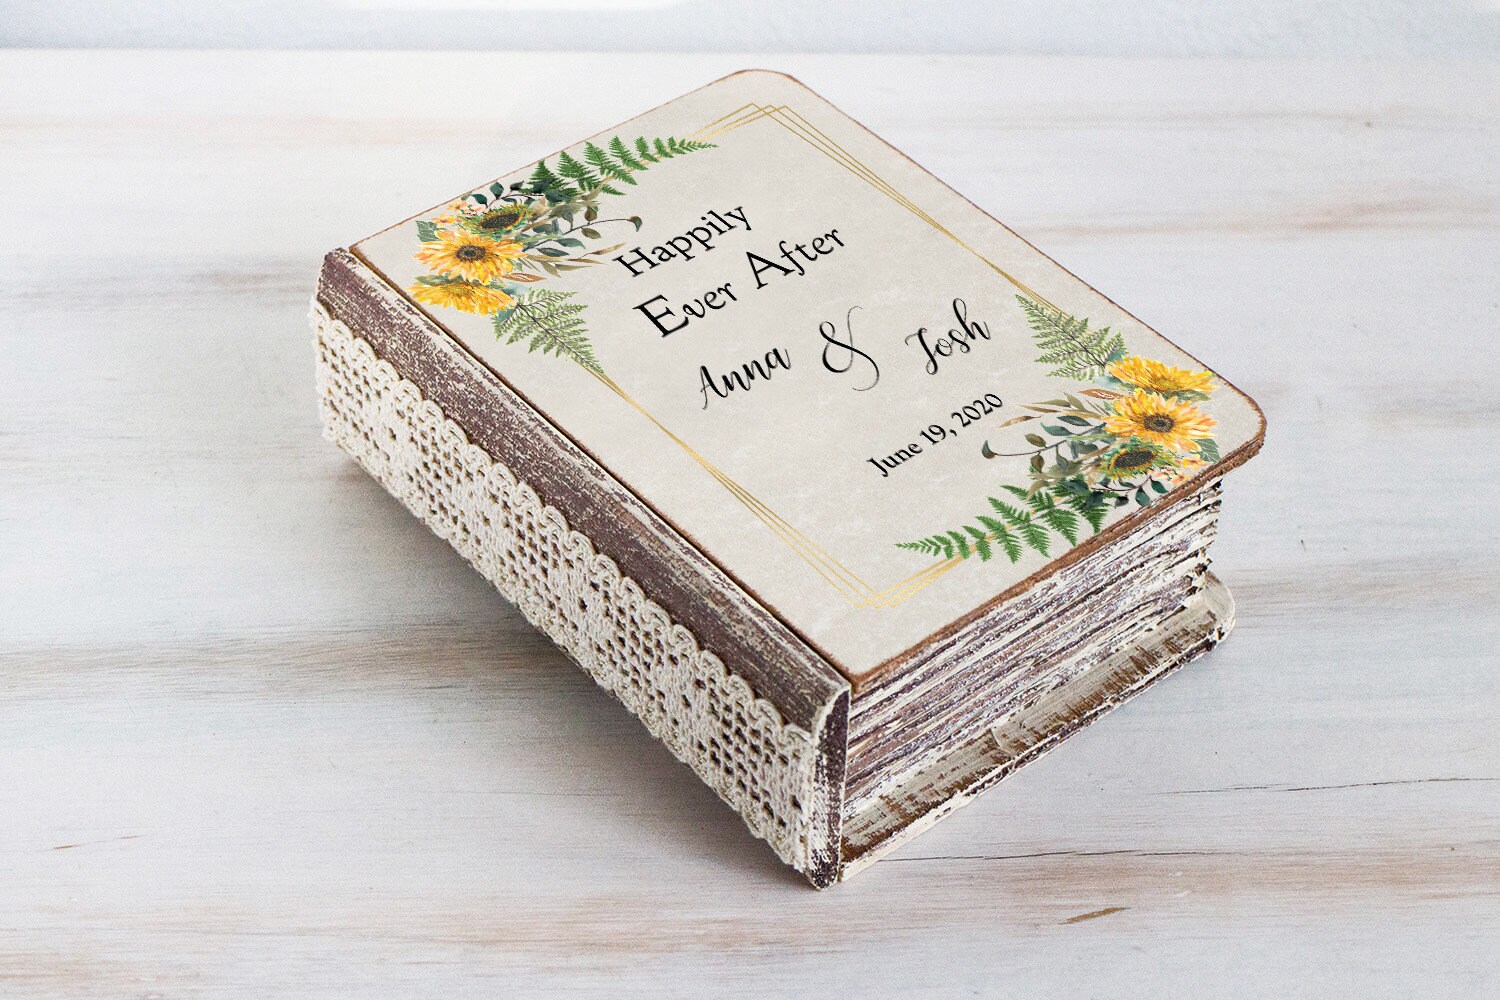 Happily
Ever After
Anna & Josh
June 19, 2020